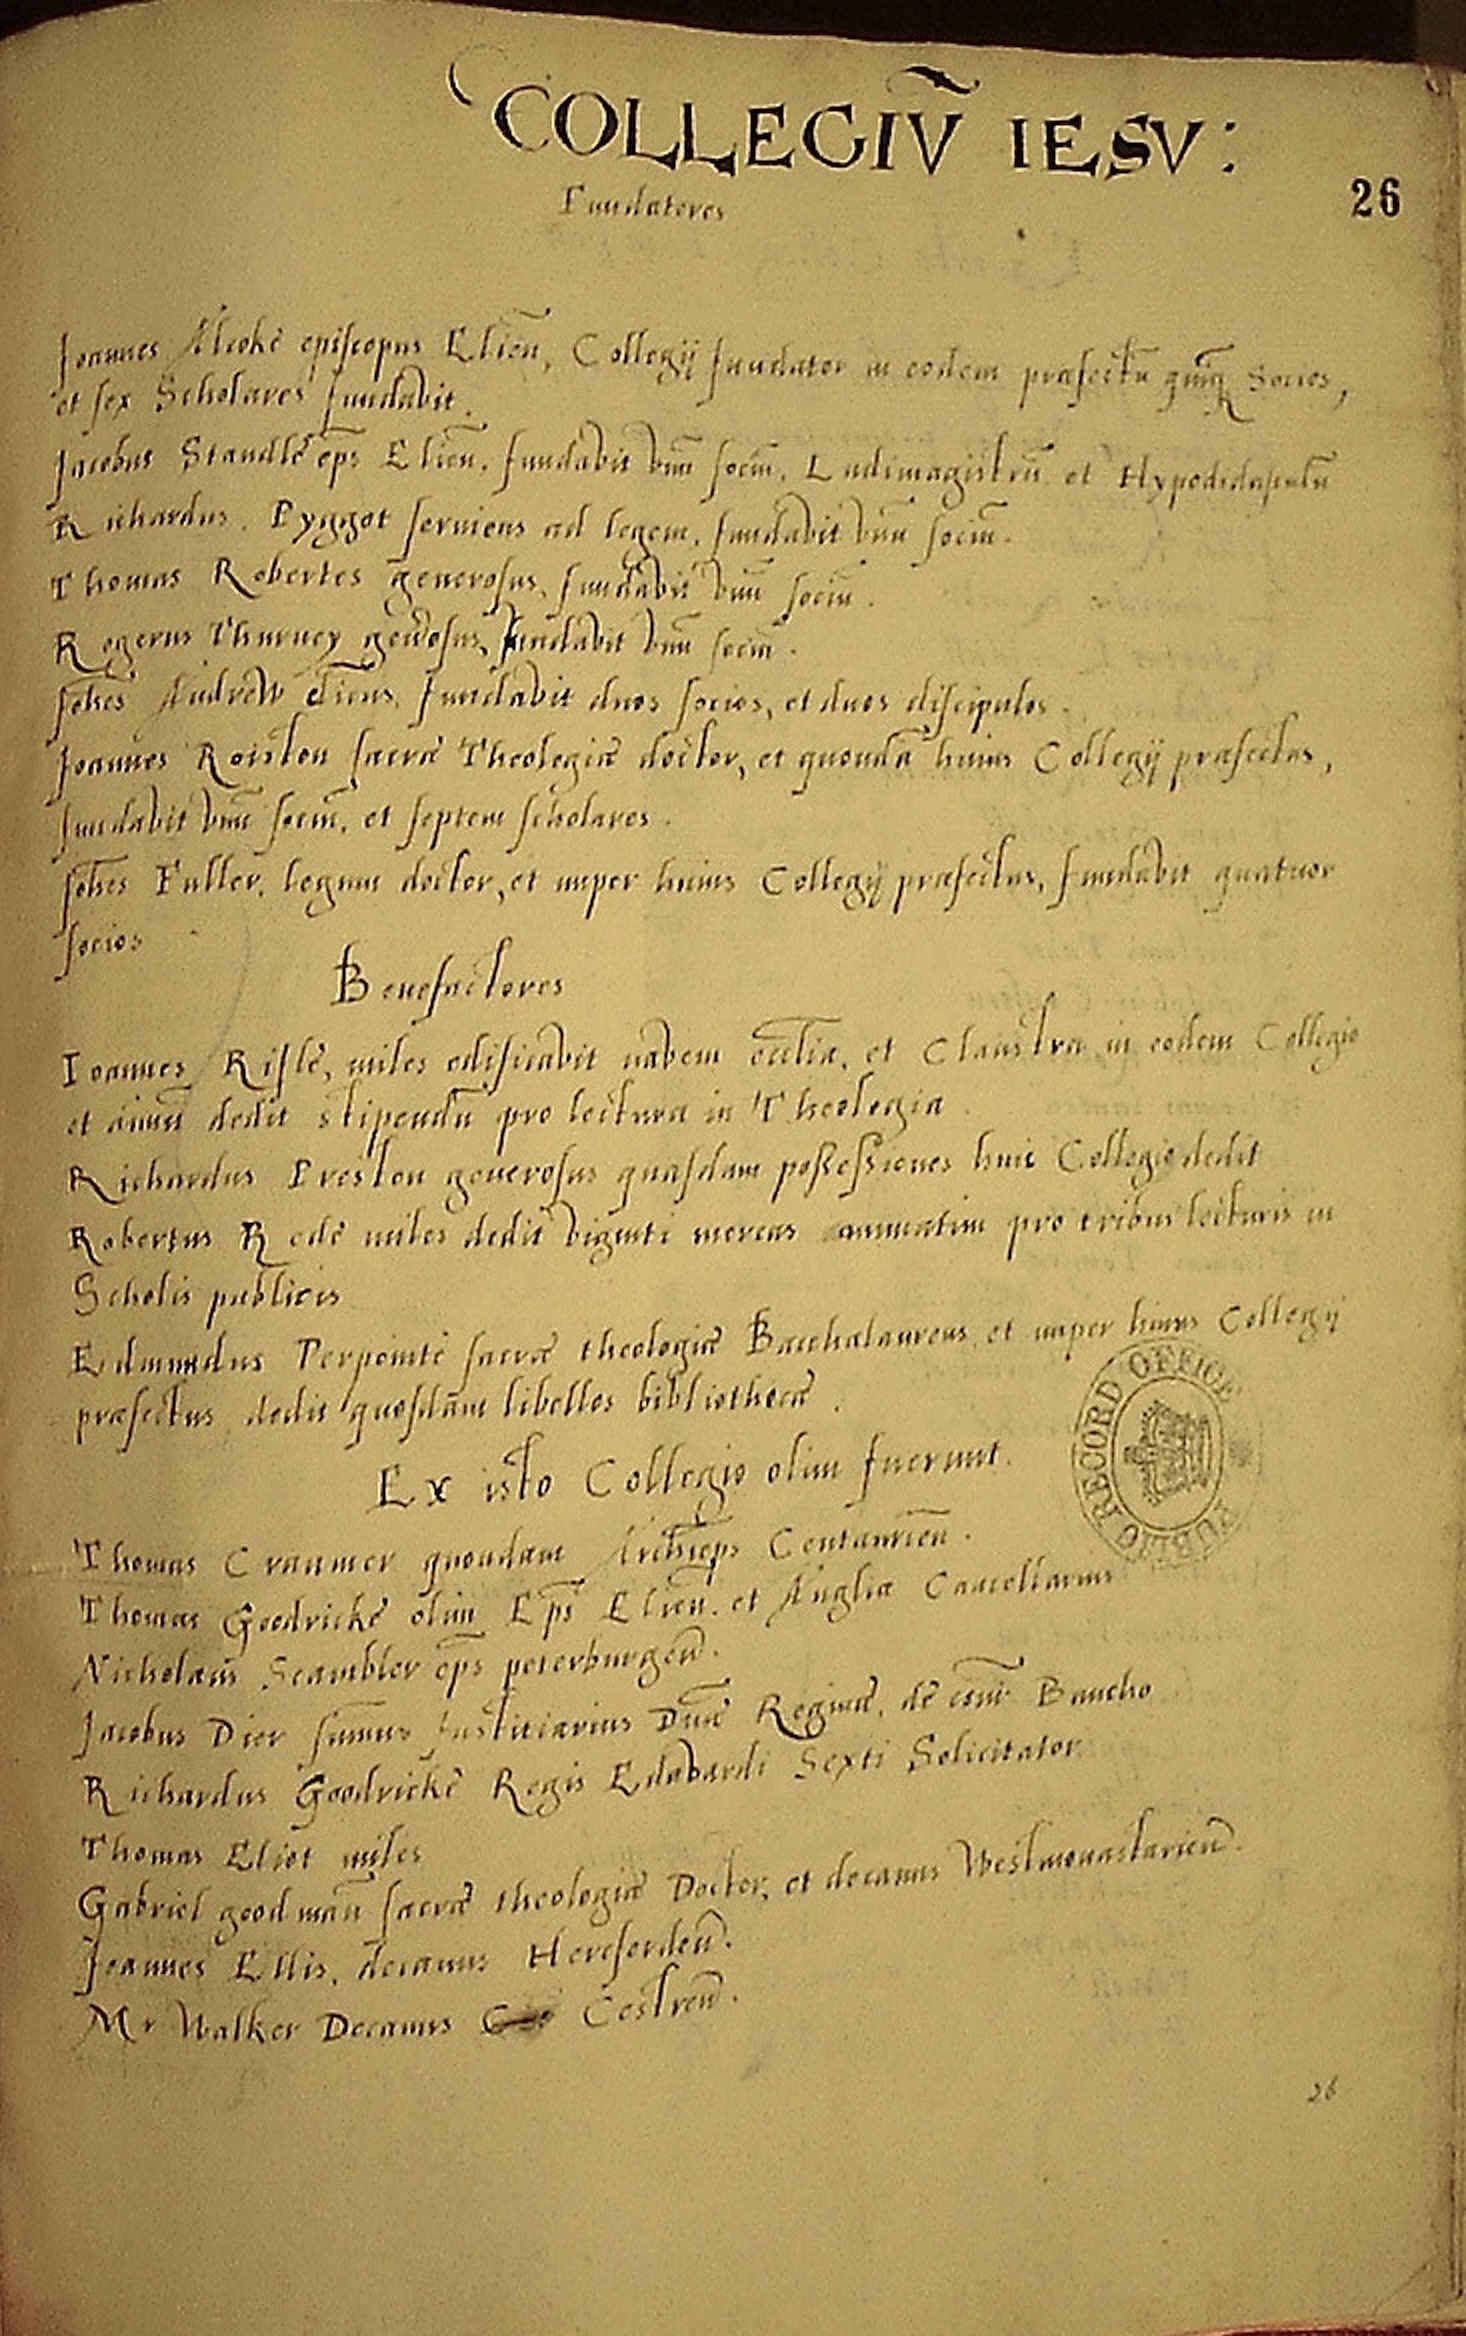 COLLEGIŪ IESV:
Fundatores
26
Joannes Alcokē episcopus Eliēn, Collegij fundator in eodem præfectū quinq̄ Socios,
et sex Scholares fundavit.
Jacobus Standlē ēps Eliēn, fundavit vnū sociū, Ludimagistrū et Hypodidasculū
Richardus Pyggot serviens ad legem, fundavit vnū sociū.
Thomas Robertes generosus, fundavit vnū sociū.
Rogerus Thurney gen̄osus, fundavit vnū sociū.
Joh̄es Andrew c̄licus, fundavit duos socios, et duos discipulos.
Joannes Roiston sacræ Theologiæ doctor, et quondā huius Collegij præfectus,
fundavit vnū sociū, et septem scholares.
Joh̄es Fuller, legum doctor, et nuper huius Collegij præfectus, fundavit quatuor
socios
Benefactores
Ioannes Rislē, miles edificavit navem eccl̄ia, et Claustra in eodem Collegio
et dedit stipendū pro lectura in Theologia
Richardus Preston generosus quasdam possessiones huic Collegio dedit
Robertus Redē miles dedit viginti mercas annuatim pro tribus lecturis in
Scholis publicis
Edmundus Perpointē sacræ theologiæ Bacchalaureus et nuper huius Collegij
præfectus dedit quosdam libellos bibliothecæ.
Ex isto Collegio olim fuerunt.
Thomas Cranmer quondam Archiēps Cantauriēn.
Thomas Goodrickē olim Ēps Eliēn. et Angliæ Cancellarius
Nicholaus Scambler ēps peterburgēn.
Jacobus Dier sūmus Justitiarius Dn̄æ Reginæ, dē cōi Bancho
Richardus Goodrickē Regis Edovardi Sexti Solicitator
Thomas Eliot miles
Gabriel goodmān sacræ theologiæ Doctor, et decanus Westmonasteriēn.
Joannes Ellis, decanus Herefordēn.
Mr Walker Decanus Cestrēn.
PUBLIC RECORD OFFICE
26